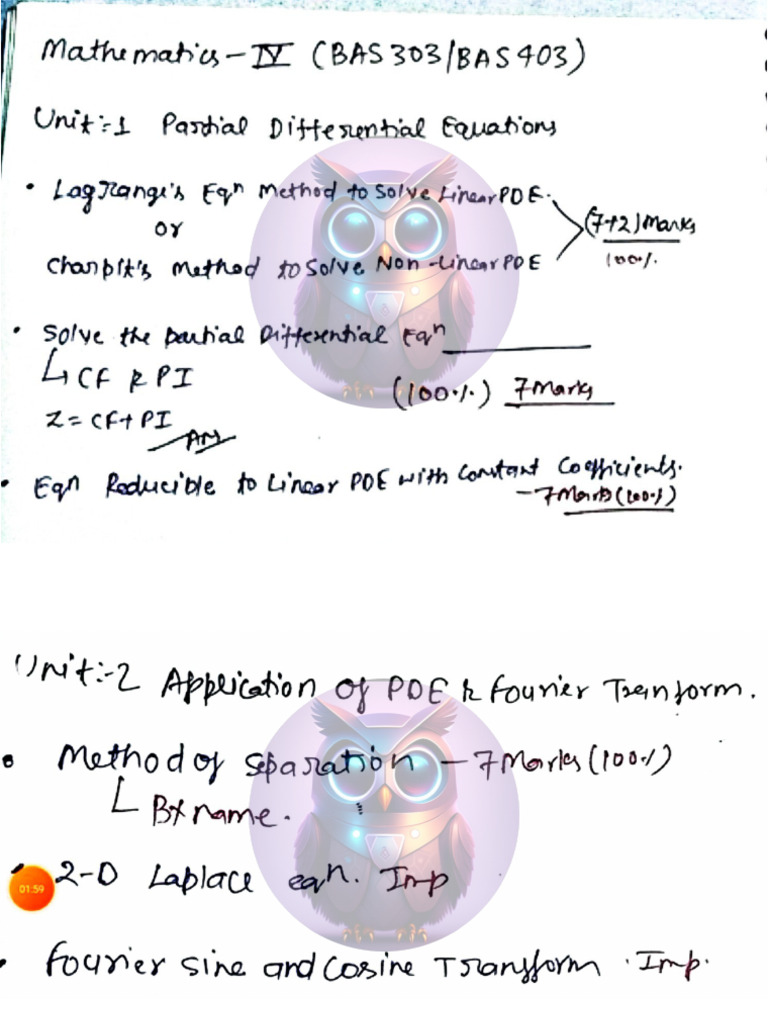 Mathematics - IV (BAS303/BAS403)
Unit:-1 Partial Differential Equations
• Lagrange's Eqn Method to Solve Linear PDE.
or
Charpit's Method to Solve Non-Linear PDE
(7+2) Marks
100%
• Solve the partial Differential Eqn ______
↳ CF & PI
(100%) 7 Marks
Z = CF + PI
Ans
• Eqn Reducible to Linear PDE with Constant Coefficients.
- 7 Marks (100%)
Unit:-2 Application of PDE & Fourier Transform.
• Method of Separation - 7 Marks (100%)
name.
01:59
2-D Laplace eqn. Imp
• Fourier Sine and Cosine Transform. Imp.